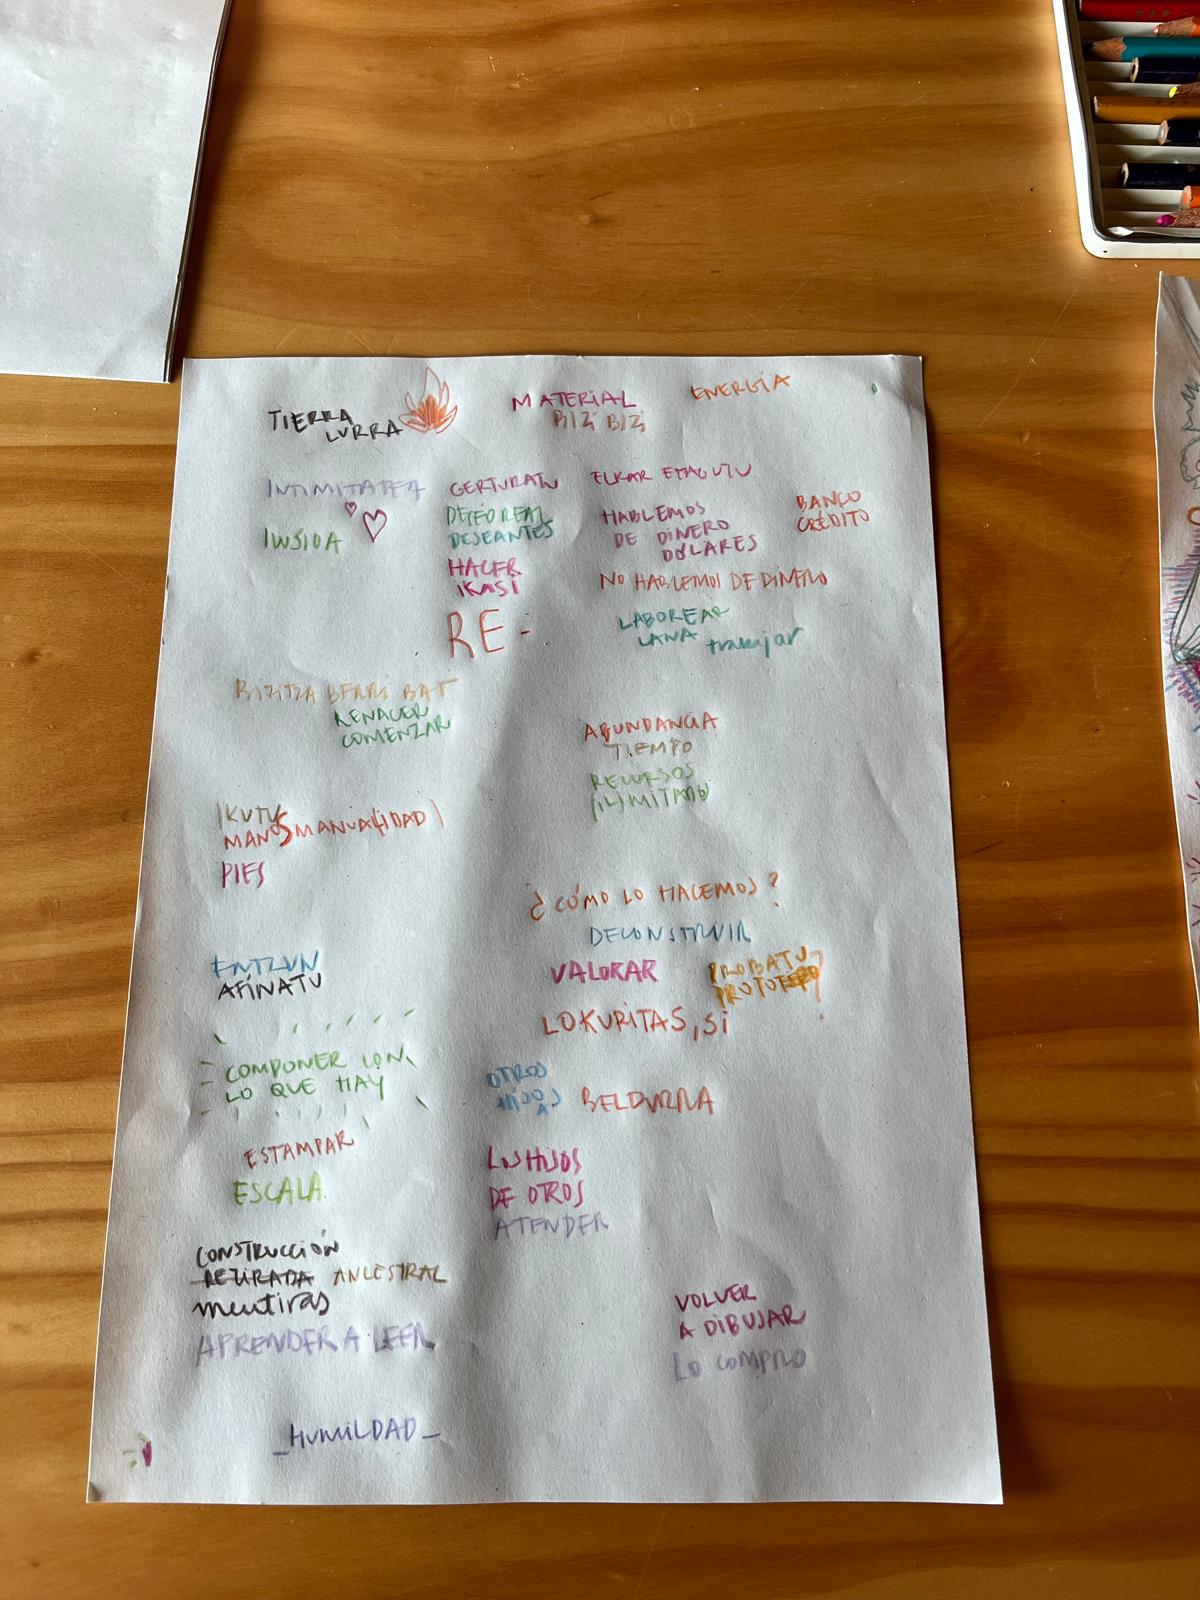 TIERRA
LURRA
MATERIAL
BIZI BIZI
ENERGÍA
INTIMITATEA
ILUSIOA
GERTURATU
DESEO REAL
DESEANTES
HACER
IKASI
RE-
ELKAR EZAGUTU
HABLEMOS
DE DINERO
DÓLARES
BANCO
CRÉDITO
NO HABLEMOS DE DINERO
LABOREAR
LANA trabajar
BIZITZA BERRI BAT
RENACER
COMENZAR
ABUNDANCIA
TIEMPO
RECURSOS
(IL)IMITADO
IKUTU
MANOS MANUAL(IDAD)
PIES
¿CÓMO LO HACEMOS?
DECONSTRUIR
VALORAR
PROBATU
PROTOTIPO?
LOKURITAS, SI
ENTZUN
AFINATU
COMPONER CON
LO QUE HAY
OTROS
HIJOS
BELDURRA
ESTAMPAR
ESCALA
LOS HIJOS
DE OTROS
ATENDER
CONSTRUCCIÓN
RETIRADA ANCESTRAL
mentiras
APRENDER A LEER
VOLVER
A DIBUJAR
LO COMPRO
_HUMILDAD_